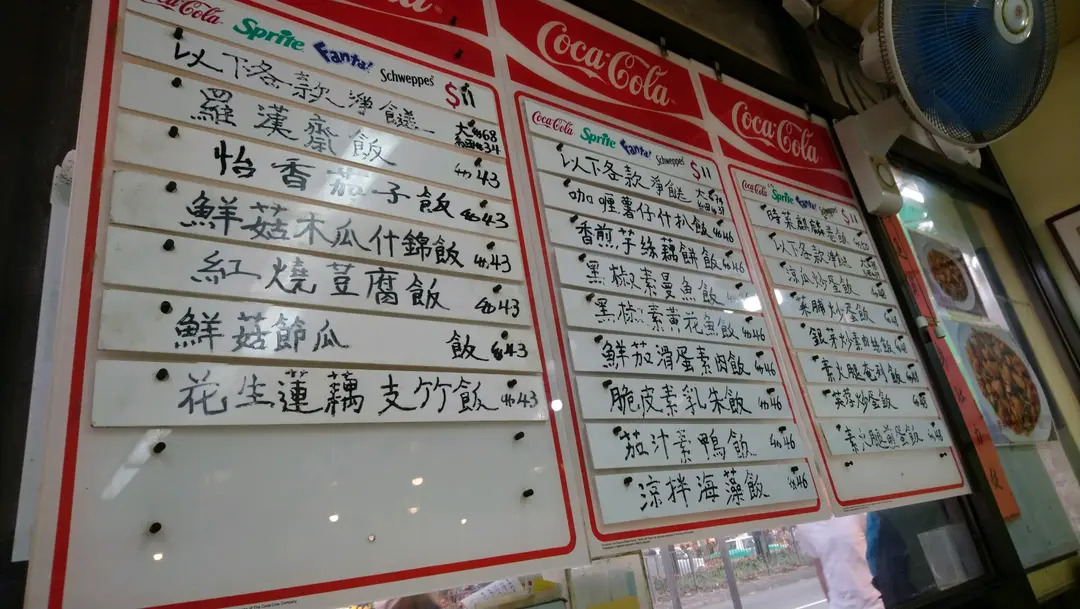 Coca-Cola
Coca-Cola Sprite Fanta Schweppes $11
以下各款淨餸 大@68 細@34
羅漢齋飯 @43
怡香茄子飯 @43
鮮菇木瓜什錦飯 @43
紅燒荳腐飯 @43
鮮菇節瓜 飯 @43
花生蓮藕支竹飯 @43
Coca-Cola
Coca-Cola Sprite Fanta Schweppes $11
以下各款淨餸
咖喱薯仔什扒飯 @46
香煎芋絲藕餅飯 @46
黑椒素曼魚飯 @46
黑椒素黃花魚飯 @46
鮮茄滑蛋素肉飯 @46
脆皮素乳朱飯 @46
茄汁素鴨飯 @46
涼拌海藻飯 @46
Coca-Cola
Coca-Cola Sprite Fanta $11
時菜麒麟卷飯
以下各款淨餸
涼瓜炒蛋飯
菜脯炒蛋飯
素火腿奄列飯
芙蓉炒蛋飯
素火腿煎蛋飯